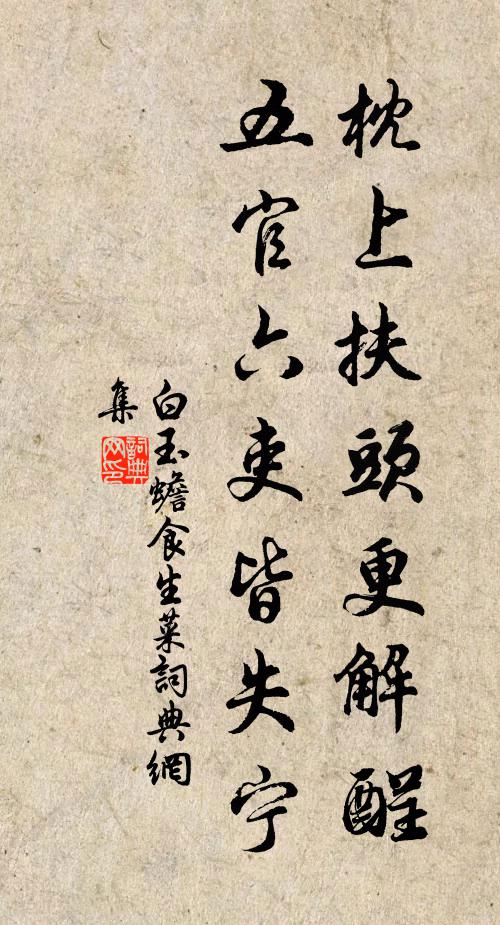 枕上扶頭更解酲
五官六吏皆失宁
白玉蟾食生菜詞典網
集
詞典
网印